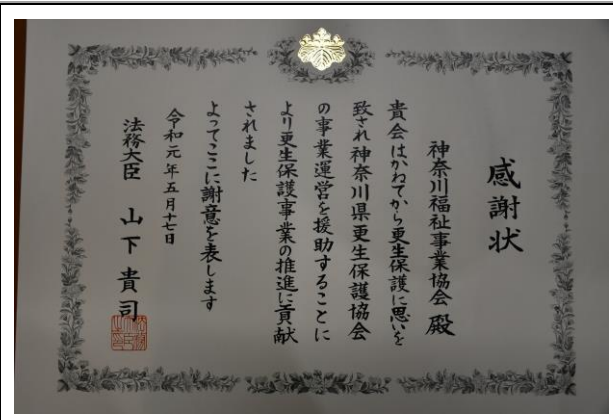 感謝状
神奈川福祉事業協会 殿
貴会はかねてから更生保護に思いを
致され神奈川県更生保護協会
の事業運営を援助することに
より更生保護事業の推進に貢献
されました
よってここに謝意を表します
令和元年五月十七日
法務大臣 山下貴司